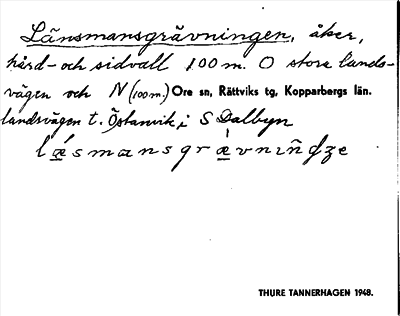 Länsmansgrävningen, åker,
hård- och sidvall 100 m. O stora lands-
vägen och N (100 m.) Ore sn, Rättviks tg, Kopparbergs län.
landsvägen t. Östanvik i S Dalbyn
THURE TANNERHAGEN 1948.